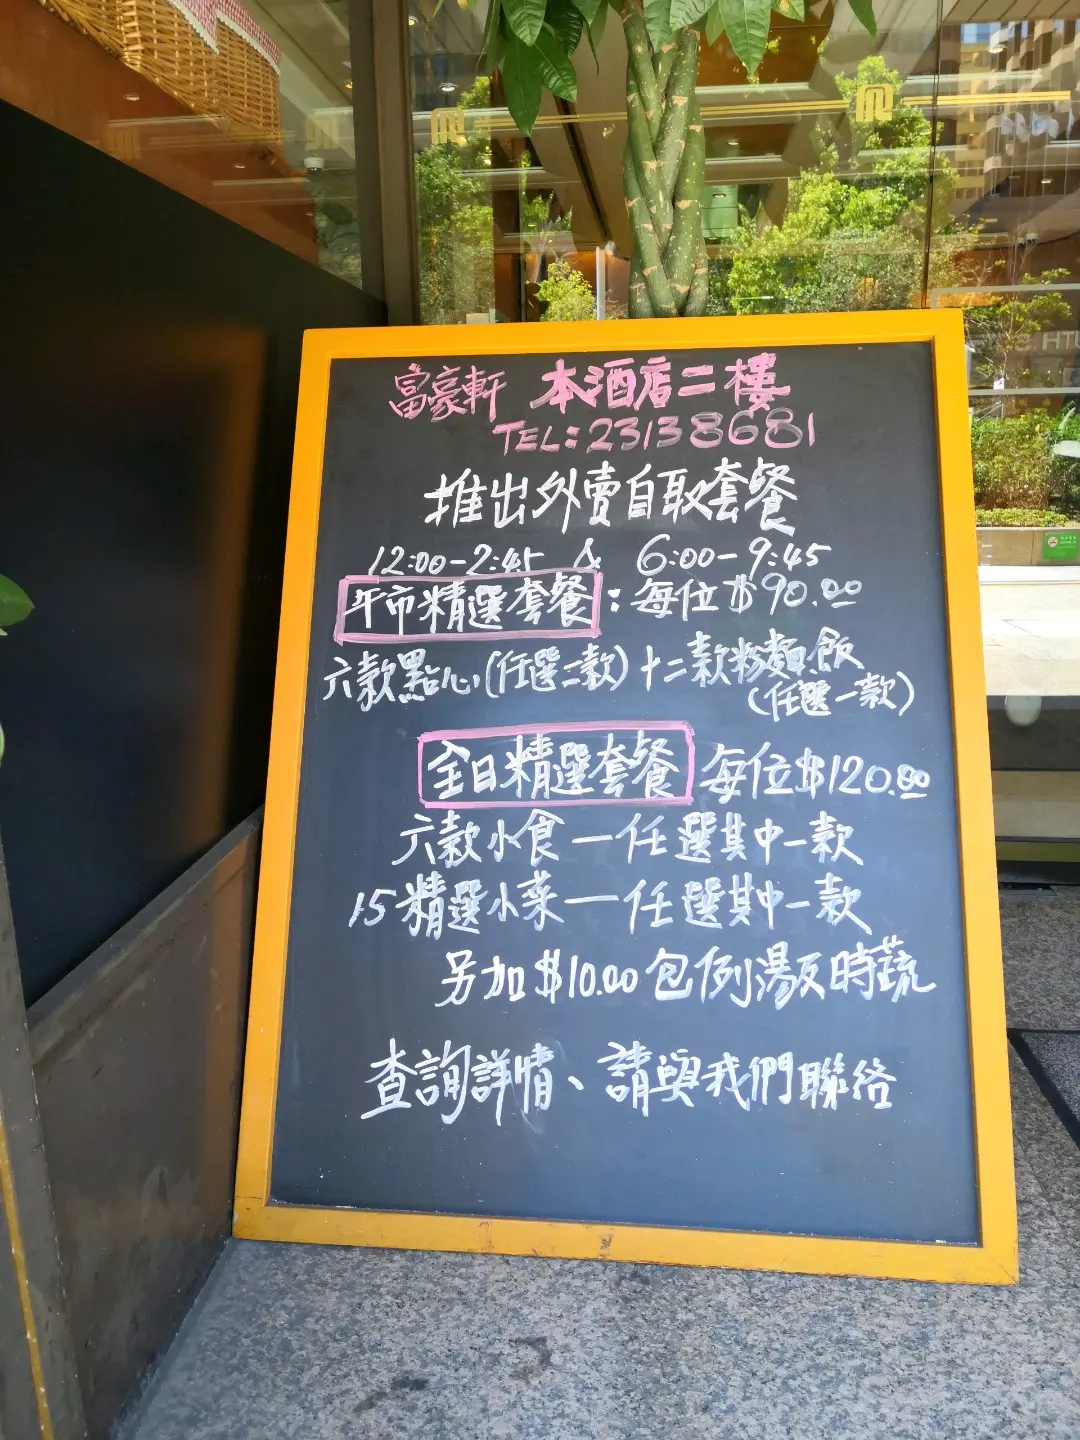 富豪軒 本酒店二樓
TEL:23138681
推出外賣自取套餐
12:00-2:45 & 6:00-9:45
午市精選套餐:每位$90.00
六款點心(任選二款)十二款粉麵飯
(任選一款)
全日精選套餐 每位$120.00
六款小食一任選其中一款
15精選小菜一任選其中一款
另加$10.00包例湯及時蔬
查詢詳情、請與我們聯絡